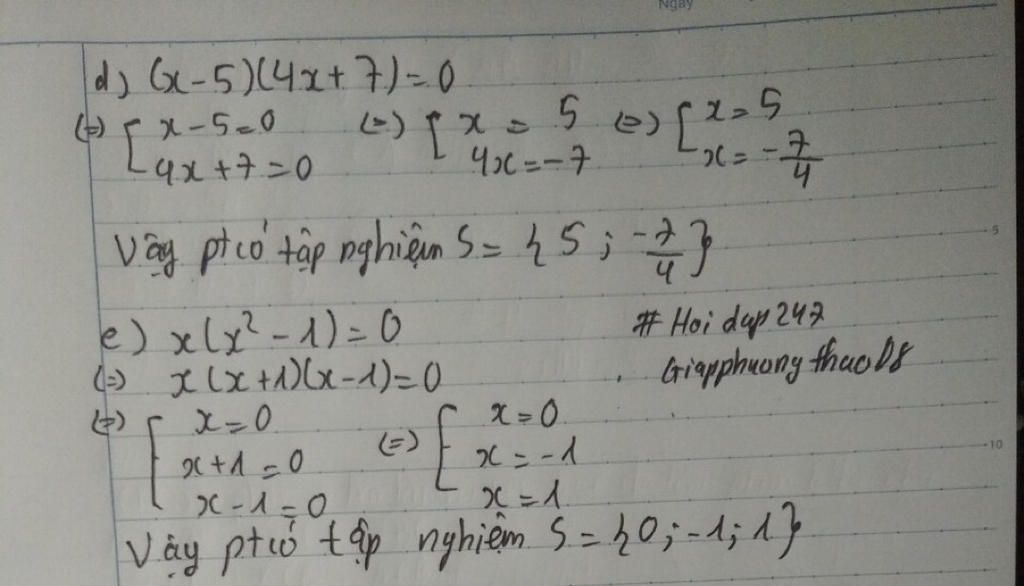 Ngày
d) (x-5)(4x+7)=0
(=) [ x-5=0 (=) [ x = 5 (=) [ x=5
4x+7=0 4x=-7 x=-7/4
Vậy pt có tập nghiệm S = { 5 ; -7/4 }
5
e) x(x²-1)=0 # Hoi dap 247
(=) x(x+1)(x-1)=0 Giapphuongthao08
(=) [ x=0 (=) [ x=0
x+1=0 x=-1
10
x-1=0 x=1
Vậy pt có tập nghiệm S = {0;-1;1}